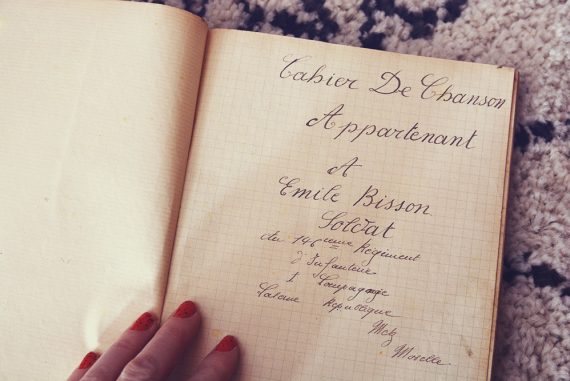 Cahier De Chanson
Appartenant
A
Emile Bisson
Soldat
du 146 ieme Régiment
d'Infanterie
1 Compagnie
Caserne République
Metz
Moselle